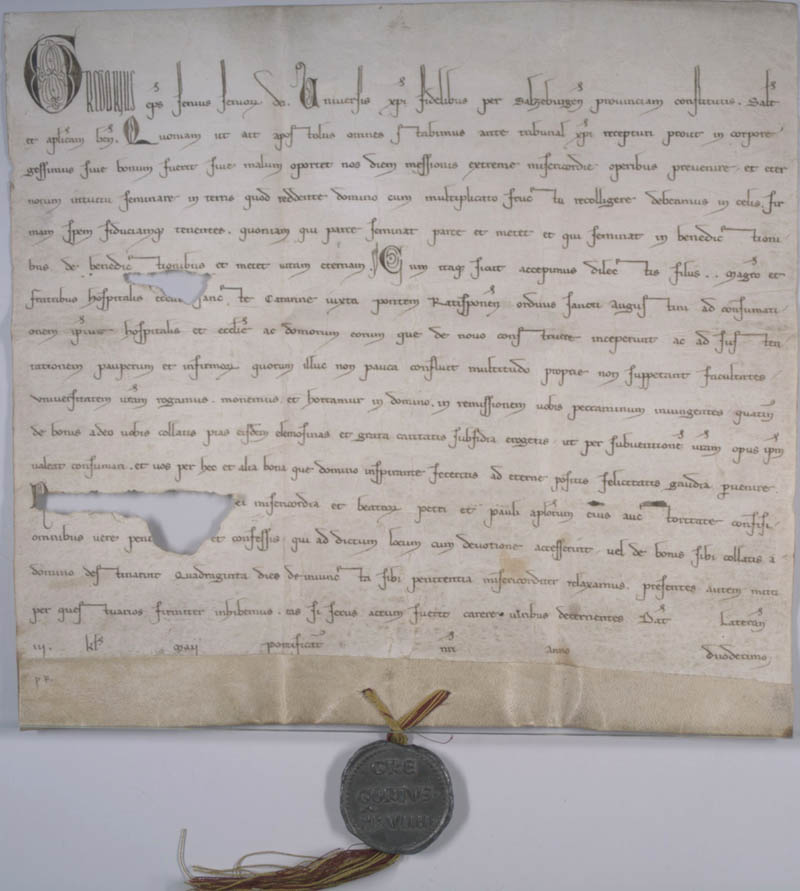 GREGORIUS eps servus servor di. Universis xpi fidelibus per Salzeburgen provinciam constitutis. Salt
et aplicam ben. Quoniam ut ait apostolus omnes stabimus ante tribunal xpi recepturi prout in corpore
gessimus sive bonum fuerit sive malum oportet nos diem messionis extreme misericordie operibus prevenire. et eter
norum intuitu seminare in terris quod reddente domino cum multiplicato fructu recolligere debeamus in celis. fir
mam spem fiduciamq tenentes. quoniam qui parce seminat parce et metet et qui seminat in benedictioni
bus. de benedictionibus et metet vitam eternam. Cum itaq sicut accepimus dilectis filiis . . Magro et
fratribus hospitalis sancte Catarine iuxta pontem Ratisponen ordinis sancti Augustini ad consumati
onem ipius hospitalis et ecclie ac domorum eorum que de novo construere inceperunt ac ad susten
tationem pauperum et infirmor quorum illuc non pauca confluit multitudo proprie non suppetant facultates.
universitatem vram rogamus. monemus. et hortamur in domino. in remissionem vobis peccaminum iniungentes quatin
de bonis a deo vobis collatis pias eisdem elemosinas et grata caritatis subsidia erogetis. ut per subventione vram opus ipm
valeat consumari. et vos per hec et alia bona que domino inspirante feceritis ad eterne possitis felicitatis gaudia pervenire.
ei misericordia et beator petri et pauli aplorum eius auctoritate confisi.
omnibus vere peni et confessis qui ad dictum locum cum devotione accesserint. vel de bonis sibi collatis a
domino destinarint Quadraginta dies de iniuncta sibi penitentia misericorditer relaxamus. presentes autem mitti
per questuarios firmiter inhibemus. eas si secus actum fuerit carere viribus decernentes Dat Lateran
iij. kls Maii pontificat nri anno duodecimo
p. R.
GRE
GORIUS